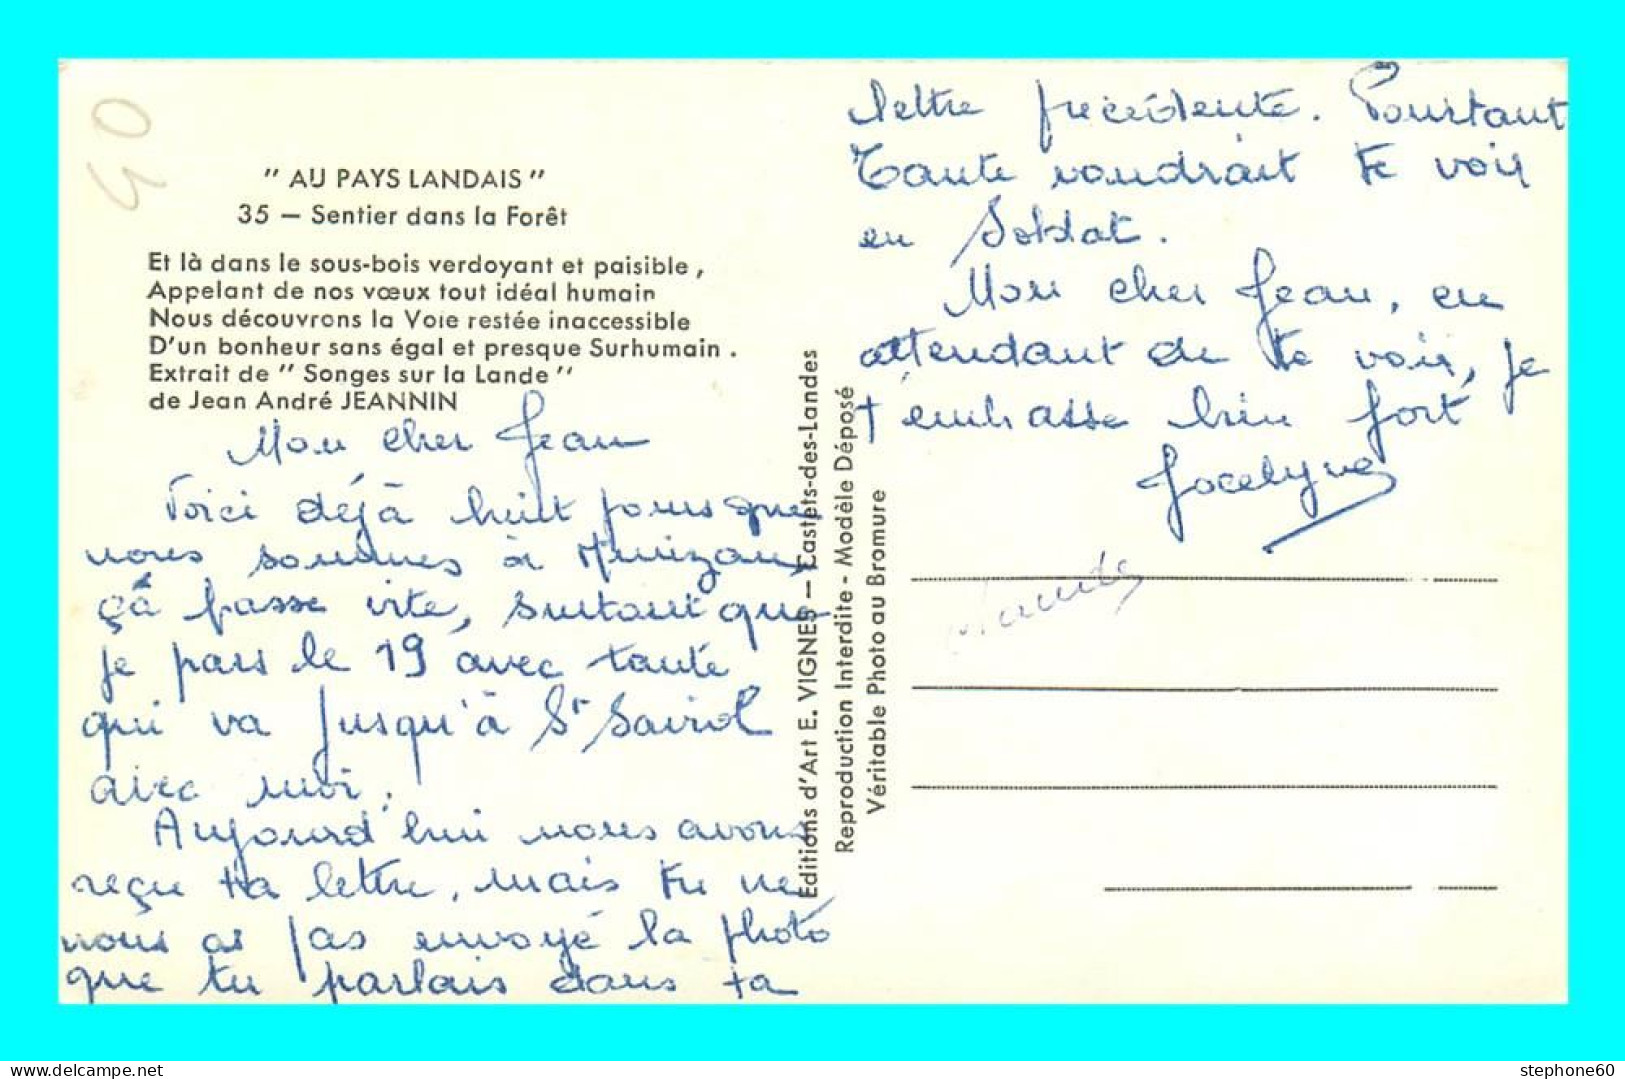 03
" AU PAYS LANDAIS "
35 — Sentier dans la Forêt
Et là dans le sous-bois verdoyant et paisible ,
Appelant de nos vœux tout idéal humain
Nous découvrons la Voie restée inaccessible
D'un bonheur sans égal et presque Surhumain .
Extrait de " Songes sur la Lande "
de Jean André JEANNIN
Mon cher Jean
Voici déjà huit jours que
nous sommes à Mimizan,
çà passe vite, surtout que
je pars le 19 avec tante
qui va jusqu'à St
avec moi.
Aujourd'hui nous avons
reçu ta lettre, mais tu ne
nous as pas envoyé la photo
que tu parlais dans ta
Editions d'Art E. VIGNES — Castets-des-Landes
Reproduction Interdite - Modèle Déposé
Véritable Photo au Bromure
lettre précédente. Pourtant
Tante voudrait te voir
en Soldat.
Mon cher Jean, en
attendant de te voir, je
t'embrasse bien fort
Jocelyne
stephone60